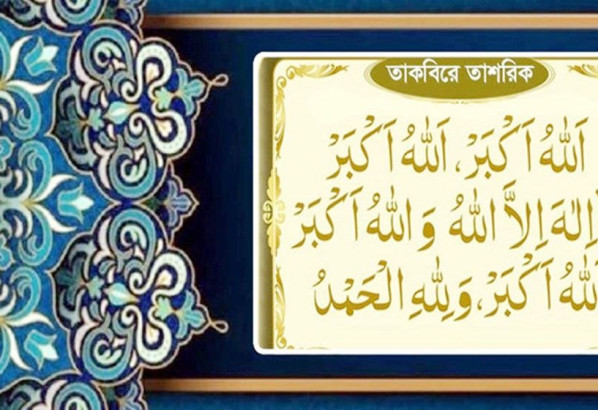 তাকবিরে তাশরিক
اَللّٰهُ اَكْبَرْ، اَللّٰهُ اَكْبَرْ
اِلٰهَ اِلاَّ اللّٰهُ وَاللّٰهُ اَكْبَرْ
اَكْبَرْ، وَلِلّٰهِ الْحَمْدُ